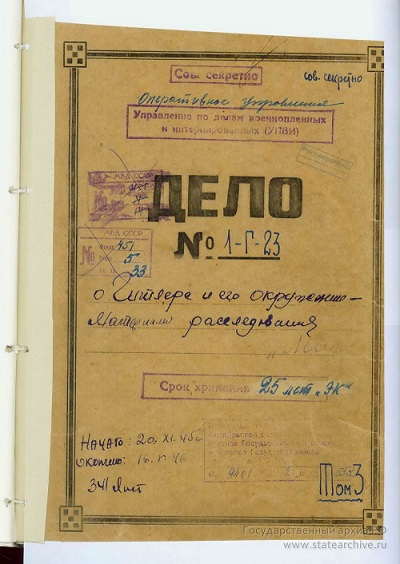 Сов. секретно
сов. секретно
Оперативное управление
Управление по делам военнопленных
и интернированных (УПВИ)
МВД СССР
ДЕЛО
№ 1-Г-23
МВД СССР
451
№ 5
33
о Гитлере и его окружении –
Материалы расследования
Срок хранения 25 лет „ЭК“
НАЧАТО: 20.XI.45г
Окончено: 16.V.46
341 лист
Том 3
Государственный архив РФ
www.statearchive.ru